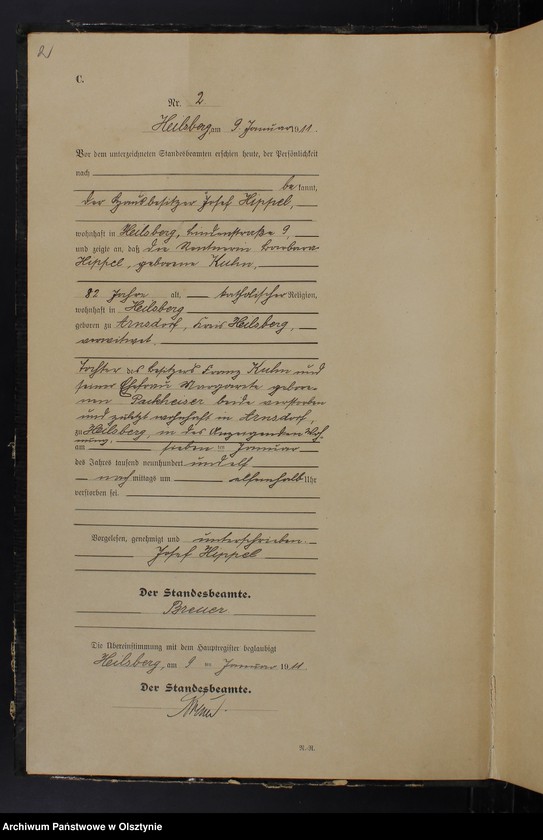 2
C.
Nr. 2
Heilsberg am 9. Januar 1911.
Vor dem unterzeichneten Standesbeamten erschien heute, der Persönlichkeit
nach
be kannt,
der Hausbesitzer Josef Hippel,
wohnhaft in Heilsberg, Lindenstraße 9,
und zeigte an, daß die Rentnerin Barbara
Hippel, geborene Kuhn,
82 Jahre alt, katholischer Religion,
wohnhaft in Heilsberg
geboren zu Arnsdorf, Kreis Heilsberg,
verwitwet,
Tochter des Besitzers Franz Kuhn und
seiner Ehefrau Margarete gebore-
nen Packheiser beide verstorben
und zuletzt wohnhaft in Arnsdorf,
zu Heilsberg, in des Anzeigenden Woh-
nung,
am sieben ten Januar
des Jahres tausend neunhundert und elf
nach mittags um elfeinhalb Uhr
verstorben sei.
Vorgelesen, genehmigt und unterschrieben.
Josef Hippel
Der Standesbeamte.
Breuer
Die Übereinstimmung mit dem Hauptregister beglaubigt
Heilsberg, am 9 ten Januar 1911.
Der Standesbeamte.
R.-R.
Archiwum Państwowe w Olsztynie